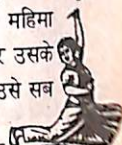 महिमा
उसके
उसे सब